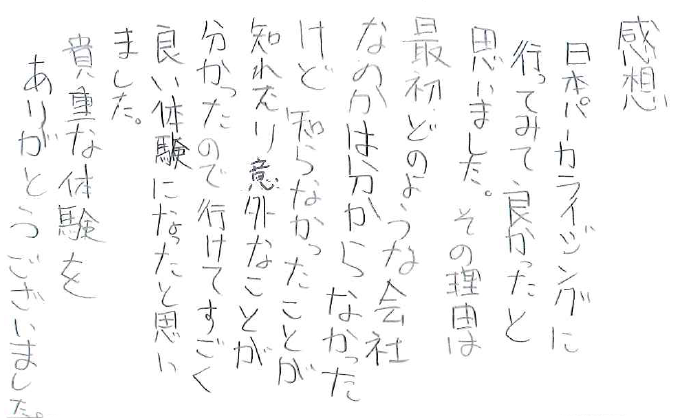 感想
日本パーカライジングに
行ってみて良かったと
思いました。その理由は
最初どのような会社
なのかは分からなかった
けど知らなかったことが
知れたり意外なことが
分かったので行けてすごく
良い体験になったと思い
ました。
貴重な体験を
ありがとうございました。